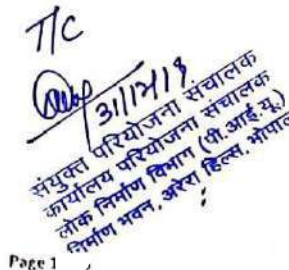 T/C
31/12/18
संयुक्त परियोजना संचालक
कार्यालय परियोजना संचालक
लोक निर्माण विभाग (पी.आई.यू.)
निर्माण भवन, अरेरा हिल्स, भोपाल
Page 1